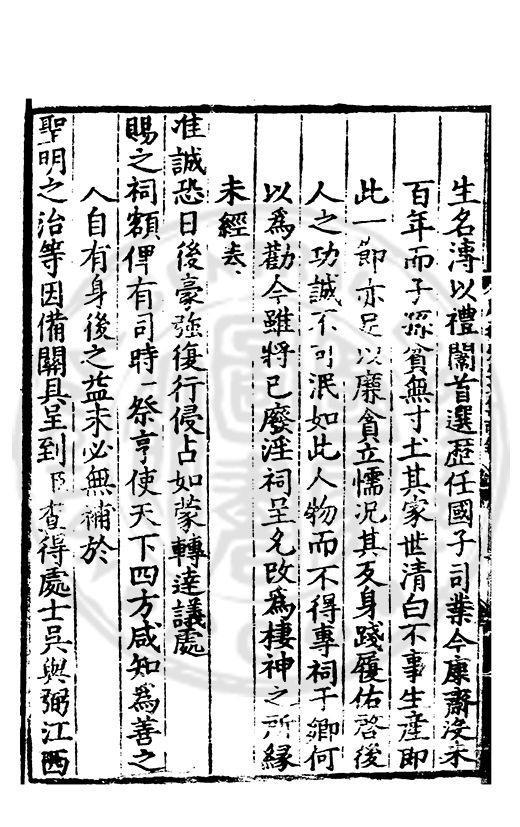 生名溥以禮闈首選歷任國子司業今康齋沒未
百年而子孫貧無寸土其家世清白不事生產即
此一節亦足以廉貪立懦况其反身踐履佑啓後
人之功誠不可泯如此人物而不得專祠于鄉何
以為勸今雖將已廢淫祠呈允改為棲神之所緣
未經奏
准誠恐日後豪強復行侵占如蒙轉達議處
賜之祠額俾有司時一祭享使天下四方咸知為善之
人自有身後之益未必無補於
聖明之治等因備關具呈到臣查得處士吳與弼江西